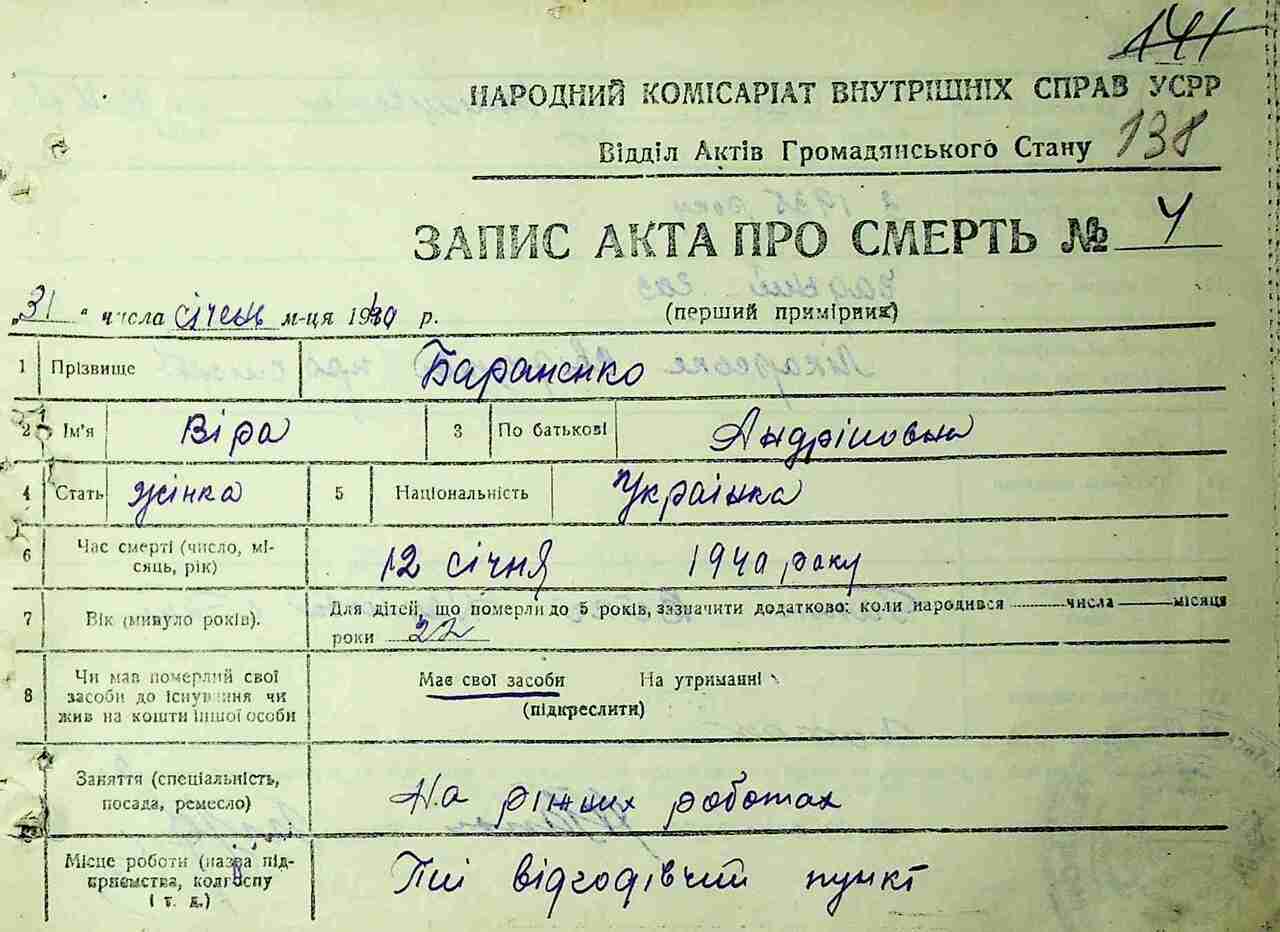 141
НАРОДНИЙ КОМІСАРІАТ ВНУТРІШНІХ СПРАВ УСРР
Відділ Актів Громадянського Стану 138
ЗАПИС АКТА ПРО СМЕРТЬ № 4
„31“ числа січень м-ця 1940 р. (перший примірник)
1 Прізвище Бараненко
2 Ім'я Віра 3 По батькові Андріповна
4 Стать жінка 5 Національність Українка
6 Час смерті (число, мі-
сяць, рік) 12 січня 1940 року
7 Вік (минуло років). Для дітей, що померли до 5 років, зазначити додатково: коли народився числа місяця
роки 22
8 Чи мав померлий свої
засоби до існування чи
жив на кошти іншої особи
Має свої засоби На утриманні
(підкреслити)
Заняття (спеціальність,
посада, ремесло) На ріжних роботах
Місце роботи (назва під-
приємства, колгоспу
і т. д.) відгодівчий пункт